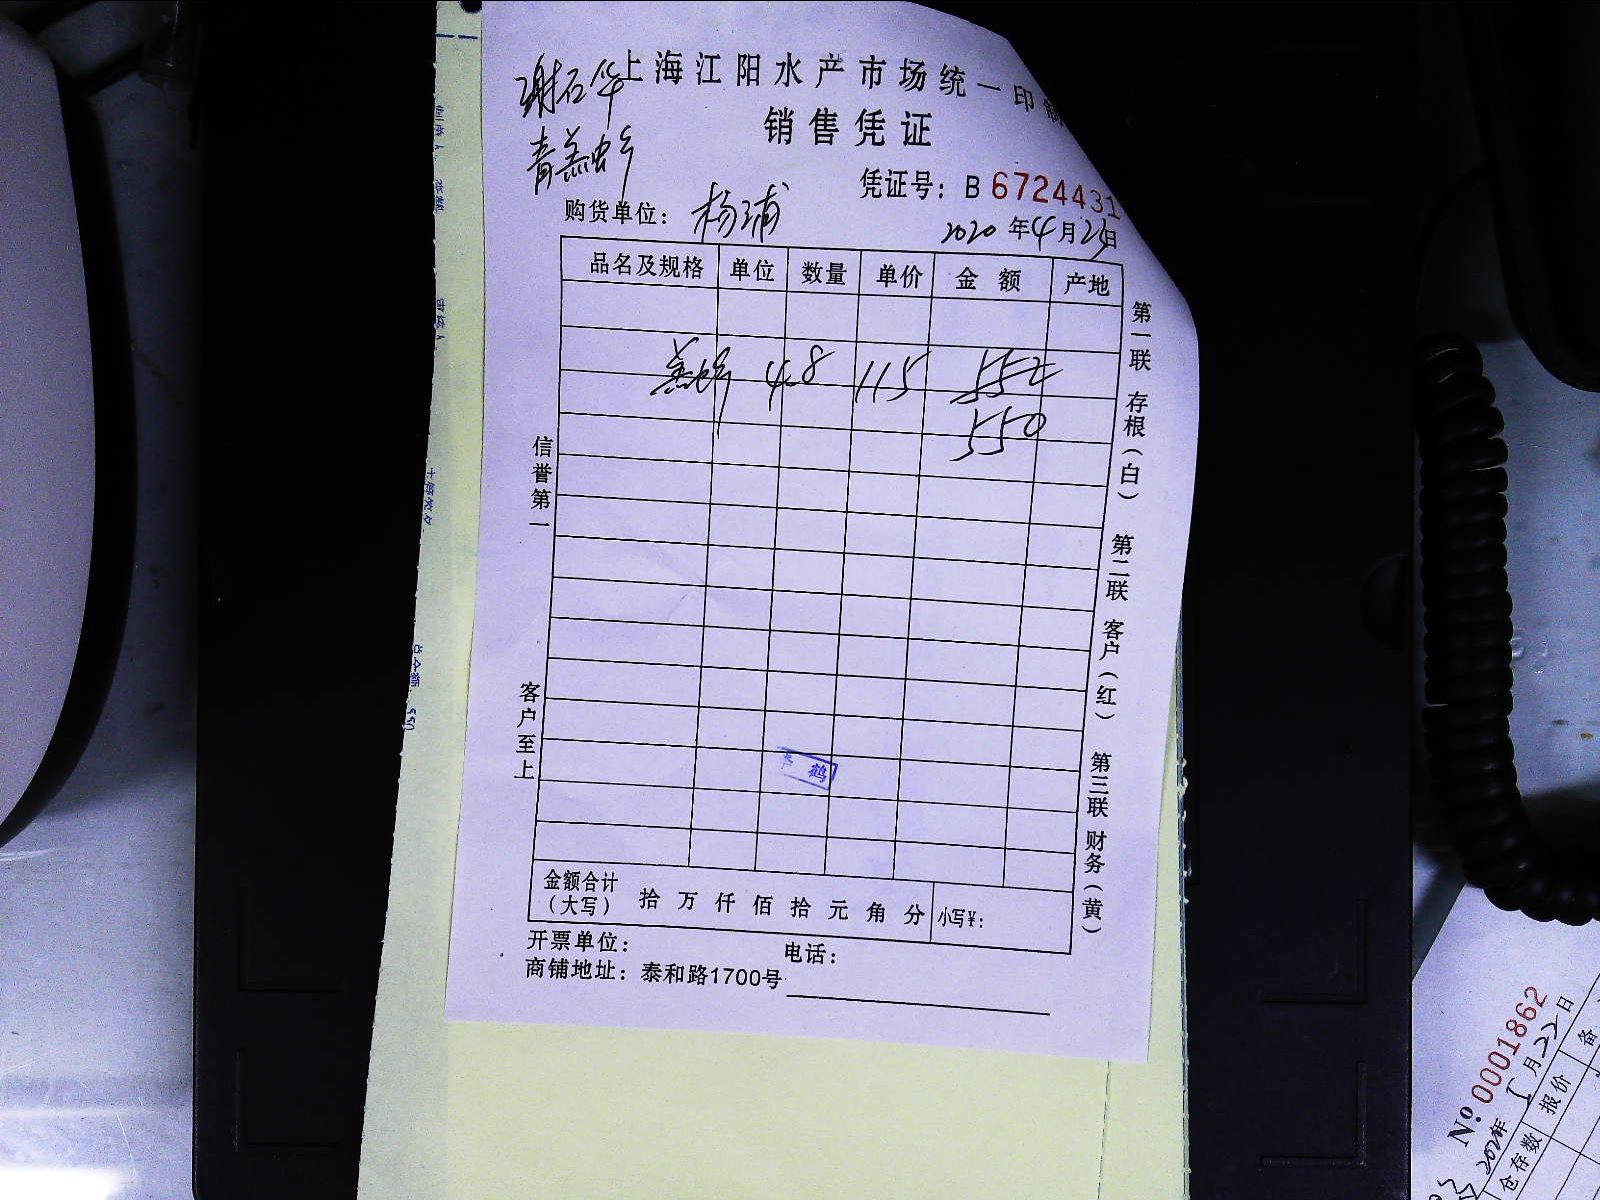 谢石华
上海江阳水产市场统一印制
销售凭证
青羔虫乡
凭证号：B 6724431
购货单位：杨浦
2020年4月25日
品名及规格 单位 数量 单价 金额 产地
4.8 115 552
550
信誉第一
客户至上
第一联 存根（白） 第二联 客户（红） 第三联 财务（黄）
鹤
金额合计（大写） 拾 万 仟 佰 拾 元 角 分 小写¥：
开票单位： 电话：
商铺地址：泰和路1700号
总金额：550
№ 0001862
月22日
仓存数 报价 备